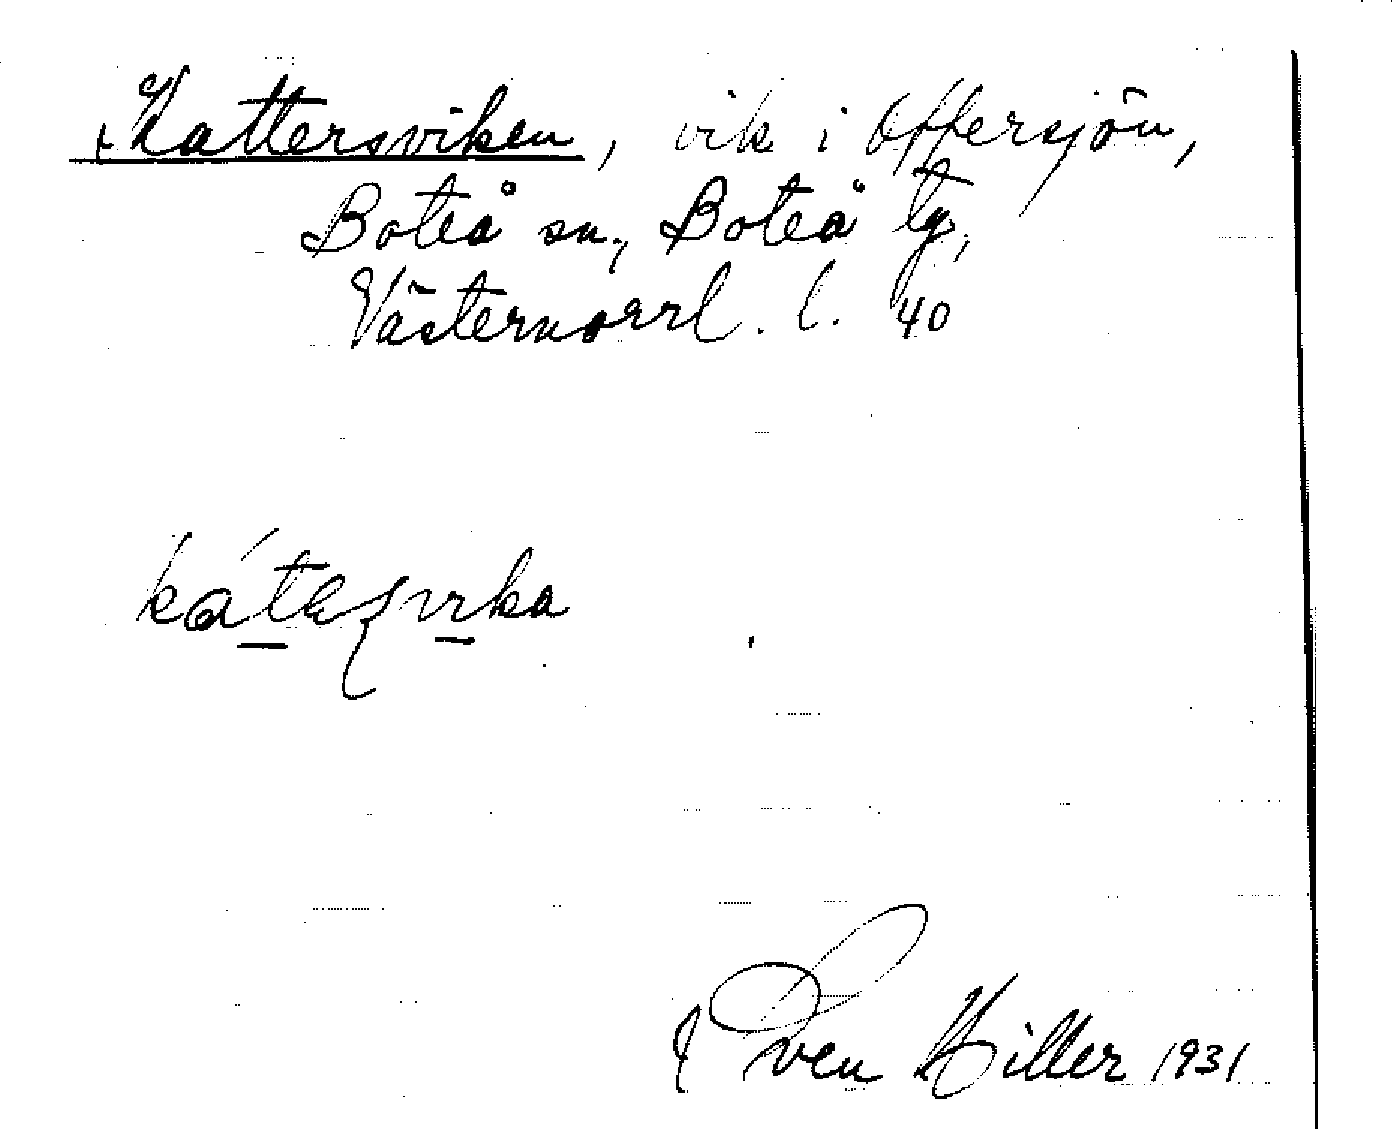 +Kattersviken, vik i Offersjön,
Boteå sn., Boteå tg,
Västernorrl. l. 40
Sven Hiller 1931